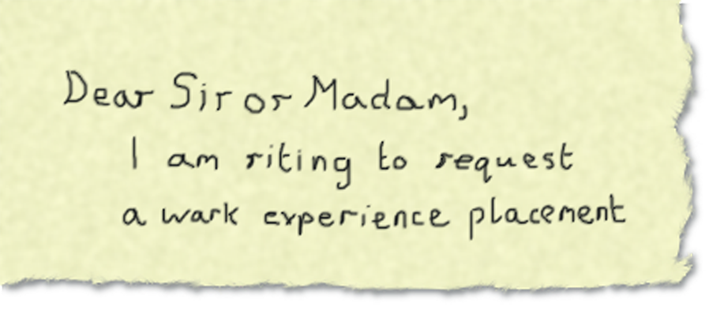 Dear Sir or Madam,
I am riting to request
a wark experience placement